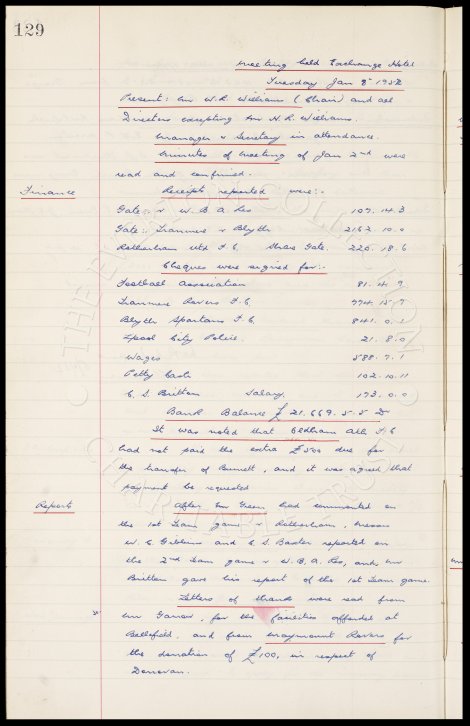 129
Meeting held Exchange Hotel
Tuesday Jan 8th 1952
Present: Mr W. R. Williams (Chair) and all
Directors excepting Mr H. R. Williams.
Manager & Secretary in attendance.
Minutes of meeting of Jan 2nd were
read and confirmed.
Finance
Receipts reported were:-
Gate: v W. B. A. Res 107. 14. 3
Gate: Tranmere v Blyth 2162. 10. 0
Rotherham Utd F. C. Share Gate. 220. 18. 6
Cheques were signed for:-
Football Association 81. 4. 9
Tranmere Rovers F. C. 994. 15. 7
Blyth Spartans F. C. 841. 0. 1
L'pool City Police. 21. 8. 0
Wages 588. 7. 1
Petty Cash 102. 10. 11
C. S. Britton Salary. 173. 0. 0
Bank Balance £21,669. 5. 5 Dr
It was noted that Oldham Ath F. C
had not paid the extra £500 due for
the transfer of Burnett, and it was agreed that
payment be requested
Reports
After Mr Green had commented on
the 1st Team game v Rotherham, Messrs
W. C. Gibbins and C. S. Baxter reported on
the 2nd Team game v W. B. A. Res, and Mr
Britton gave his report of the 1st Team game.
Letters of thanks were read from
Mr , for the facilities afforded at
Bellefield, and from Maymount Rovers for
the donation of £100, in respect of
Donovan.
THE EVERTON COLLECTION
CHARITABLE TRUST